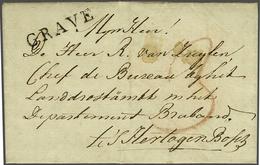 GRAVE
Mijn Heer!
De Heer R. van Zuylen
Chef de Bureau by het
Landdrostambt in het
Departement Braband.
te 's Hertogen Bosch